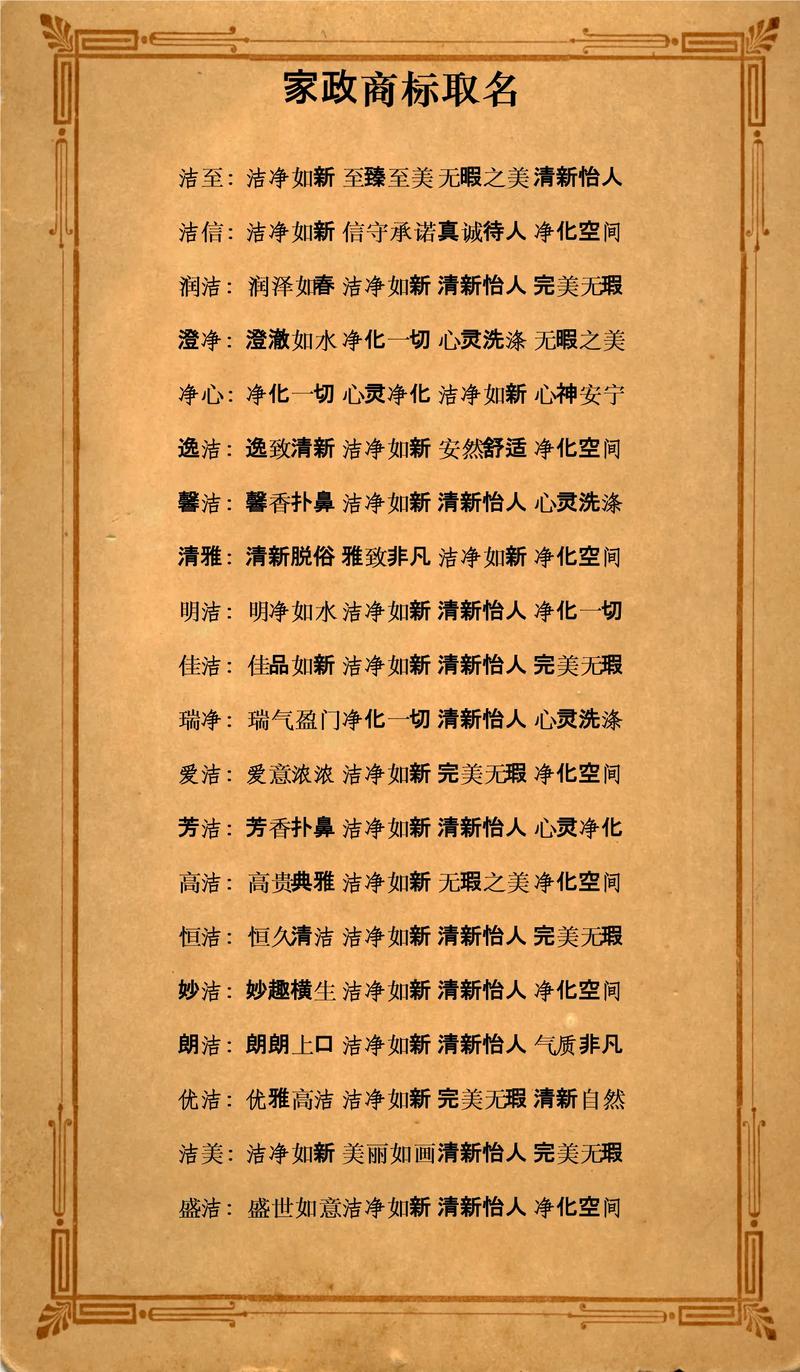 家政商标取名
洁至：洁净如新 至臻至美 无暇之美 清新怡人
洁信：洁净如新 信守承诺 真诚待人 净化空间
润洁：润泽如春 洁净如新 清新怡人 完美无瑕
澄净：澄澈如水 净化一切 心灵洗涤 无暇之美
净心：净化一切 心灵净化 洁净如新 心神安宁
逸洁：逸致清新 洁净如新 安然舒适 净化空间
馨洁：馨香扑鼻 洁净如新 清新怡人 心灵洗涤
清雅：清新脱俗 雅致非凡 洁净如新 净化空间
明洁：明净如水 洁净如新 清新怡人 净化一切
佳洁：佳品如新 洁净如新 清新怡人 完美无瑕
瑞净：瑞气盈门 净化一切 清新怡人 心灵洗涤
爱洁：爱意浓浓 洁净如新 完美无瑕 净化空间
芳洁：芳香扑鼻 洁净如新 清新怡人 心灵净化
高洁：高贵典雅 洁净如新 无瑕之美 净化空间
恒洁：恒久清洁 洁净如新 清新怡人 完美无瑕
妙洁：妙趣横生 洁净如新 清新怡人 净化空间
朗洁：朗朗上口 洁净如新 清新怡人 气质非凡
优洁：优雅高洁 洁净如新 完美无瑕 清新自然
洁美：洁净如新 美丽如画 清新怡人 完美无瑕
盛洁：盛世如意 洁净如新 清新怡人 净化空间